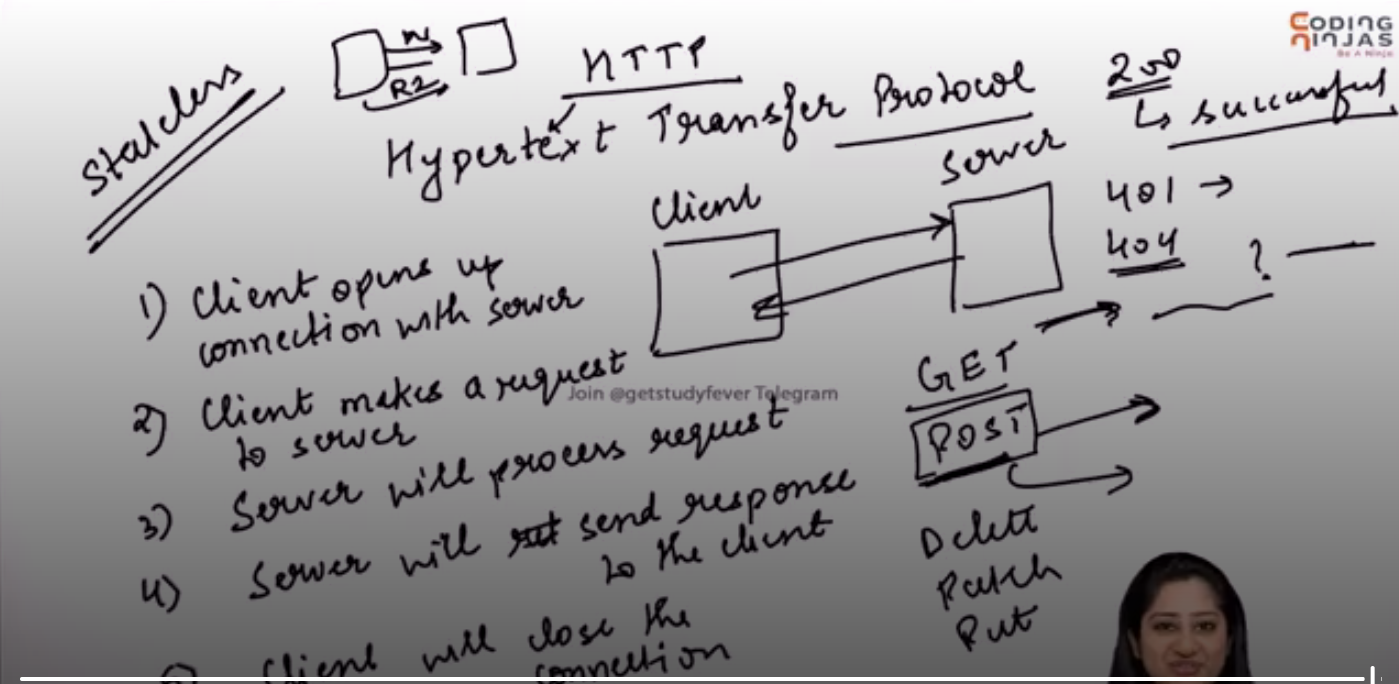 CODING
NINJAS
Be A Ninja
Stateless
R2
HTTP
Hypertext Transfer Protocol
200
↳ successful
401 →
404
?
Client
Server
1) Client opens up
connection with server
2) Client makes a request
to server
3) Server will process request
4) Server will send response
to the client
Client will close the
connection
GET
POST
Delete
Patch
Put
Join @getstudyfever Telegram